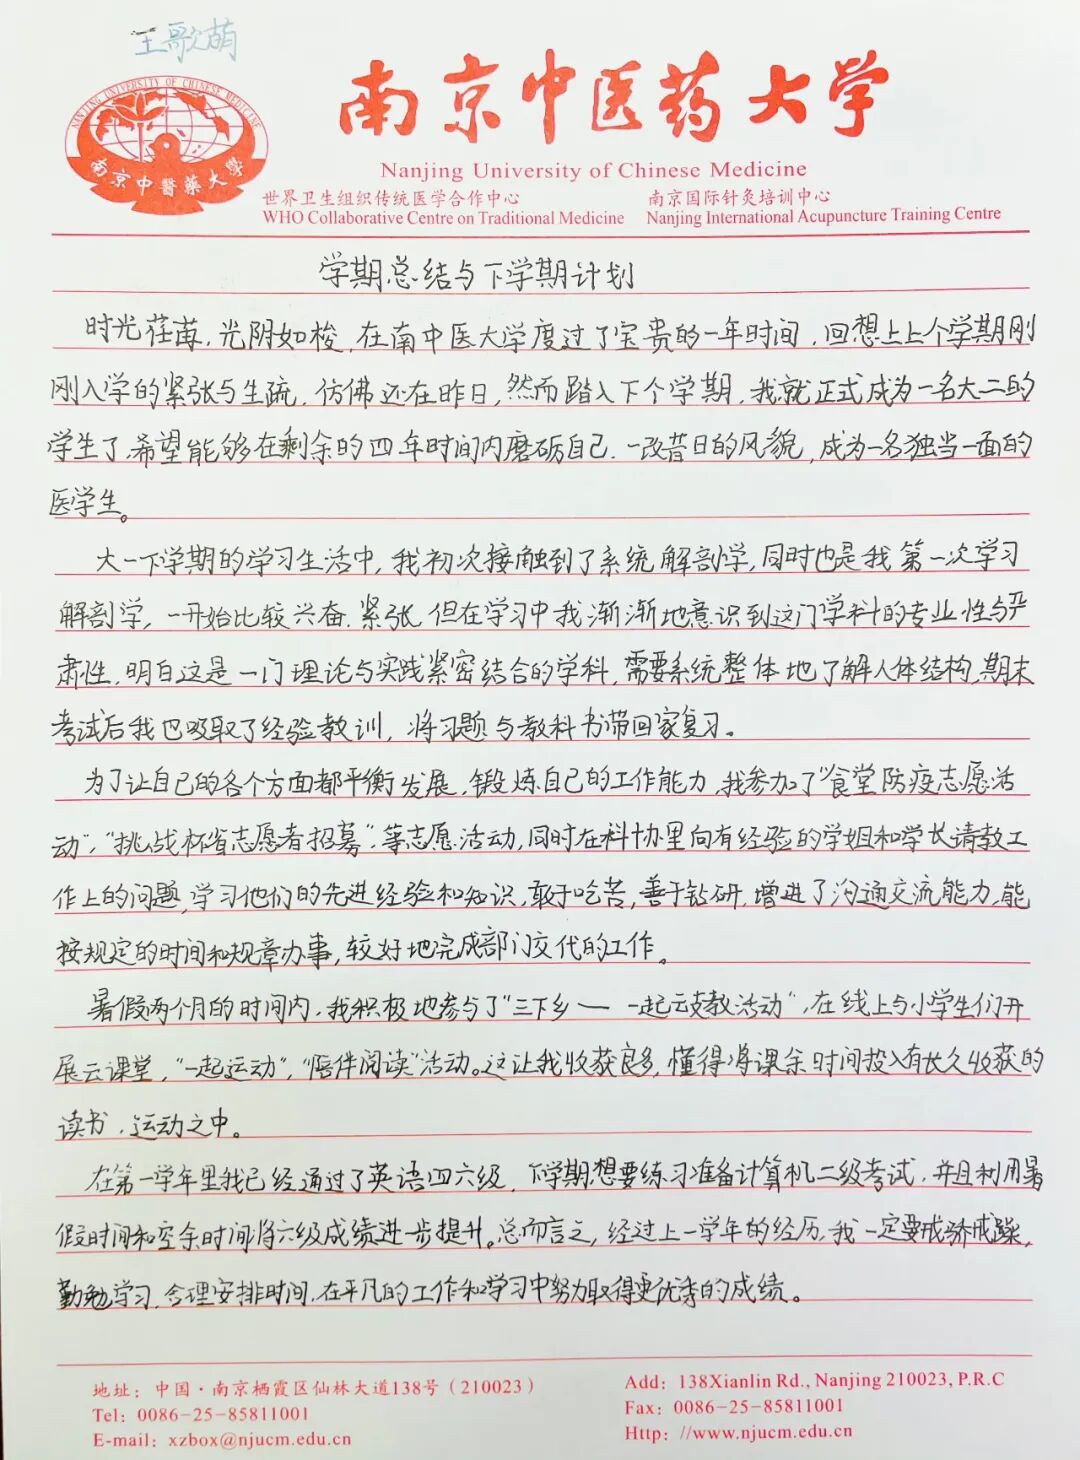 王歌萌
南京中医药大学
NANJING UNIVERSITY OF CHINESE MEDICINE
南京中醫藥大學
Nanjing University of Chinese Medicine
世界卫生组织传统医学合作中心 南京国际针灸培训中心
WHO Collaborative Centre on Traditional Medicine Nanjing International Acupuncture Training Centre
学期总结与下学期计划
时光荏苒,光阴如梭,在南中医大学度过了宝贵的一年时间,回想上上个学期刚
刚入学的紧张与生疏,仿佛还在昨日,然而踏入下个学期,我就正式成为一名大二的
学生了,希望能够在剩余的四年时间内磨砺自己,一改昔日的风貌,成为一名独当一面的
医学生。
大一下学期的学习生活中,我初次接触到了系统解剖学,同时也是我第一次学习
解剖学,一开始比较兴奋、紧张,但在学习中我渐渐地意识到这门学科的专业性与严
肃性,明白这是一门理论与实践紧密结合的学科,需要系统整体地了解人体结构,期末
考试后我也吸取了经验教训,将习题与教科书带回家复习。
为了让自己的各个方面都平衡发展,锻炼自己的工作能力,我参加了“食堂防疫志愿活
动”,“挑战杯省志愿者招募”等志愿活动,同时在科协里向有经验的学姐和学长请教工
作上的问题,学习他们的先进经验和知识,敢于吃苦,善于钻研,增进了沟通交流能力,能
按规定的时间和规章办事,较好地完成部门交代的工作。
暑假两个月的时间内,我积极地参与了“三下乡——一起云支教活动”,在线上与小学生们开
展云课堂,“一起运动”,“陪伴阅读”活动。这让我收获良多,懂得将课余时间投入有长久收获的
读书、运动之中。
在第一学年里我已经通过了英语四六级,下学期想要练习准备计算机二级考试,并且利用暑
假时间和空余时间将六级成绩进一步提升。总而言之,经过上一学年的经历,我一定要戒骄戒躁,
勤勉学习,合理安排时间,在平凡的工作和学习中努力取得更优秀的成绩。
地址:中国·南京栖霞区仙林大道138号(210023) Add: 138Xianlin Rd., Nanjing 210023, P.R.C
Tel: 0086-25-85811001 Fax: 0086-25-85811001
E-mail: xzbox@njucm.edu.cn Http: //www.njucm.edu.cn